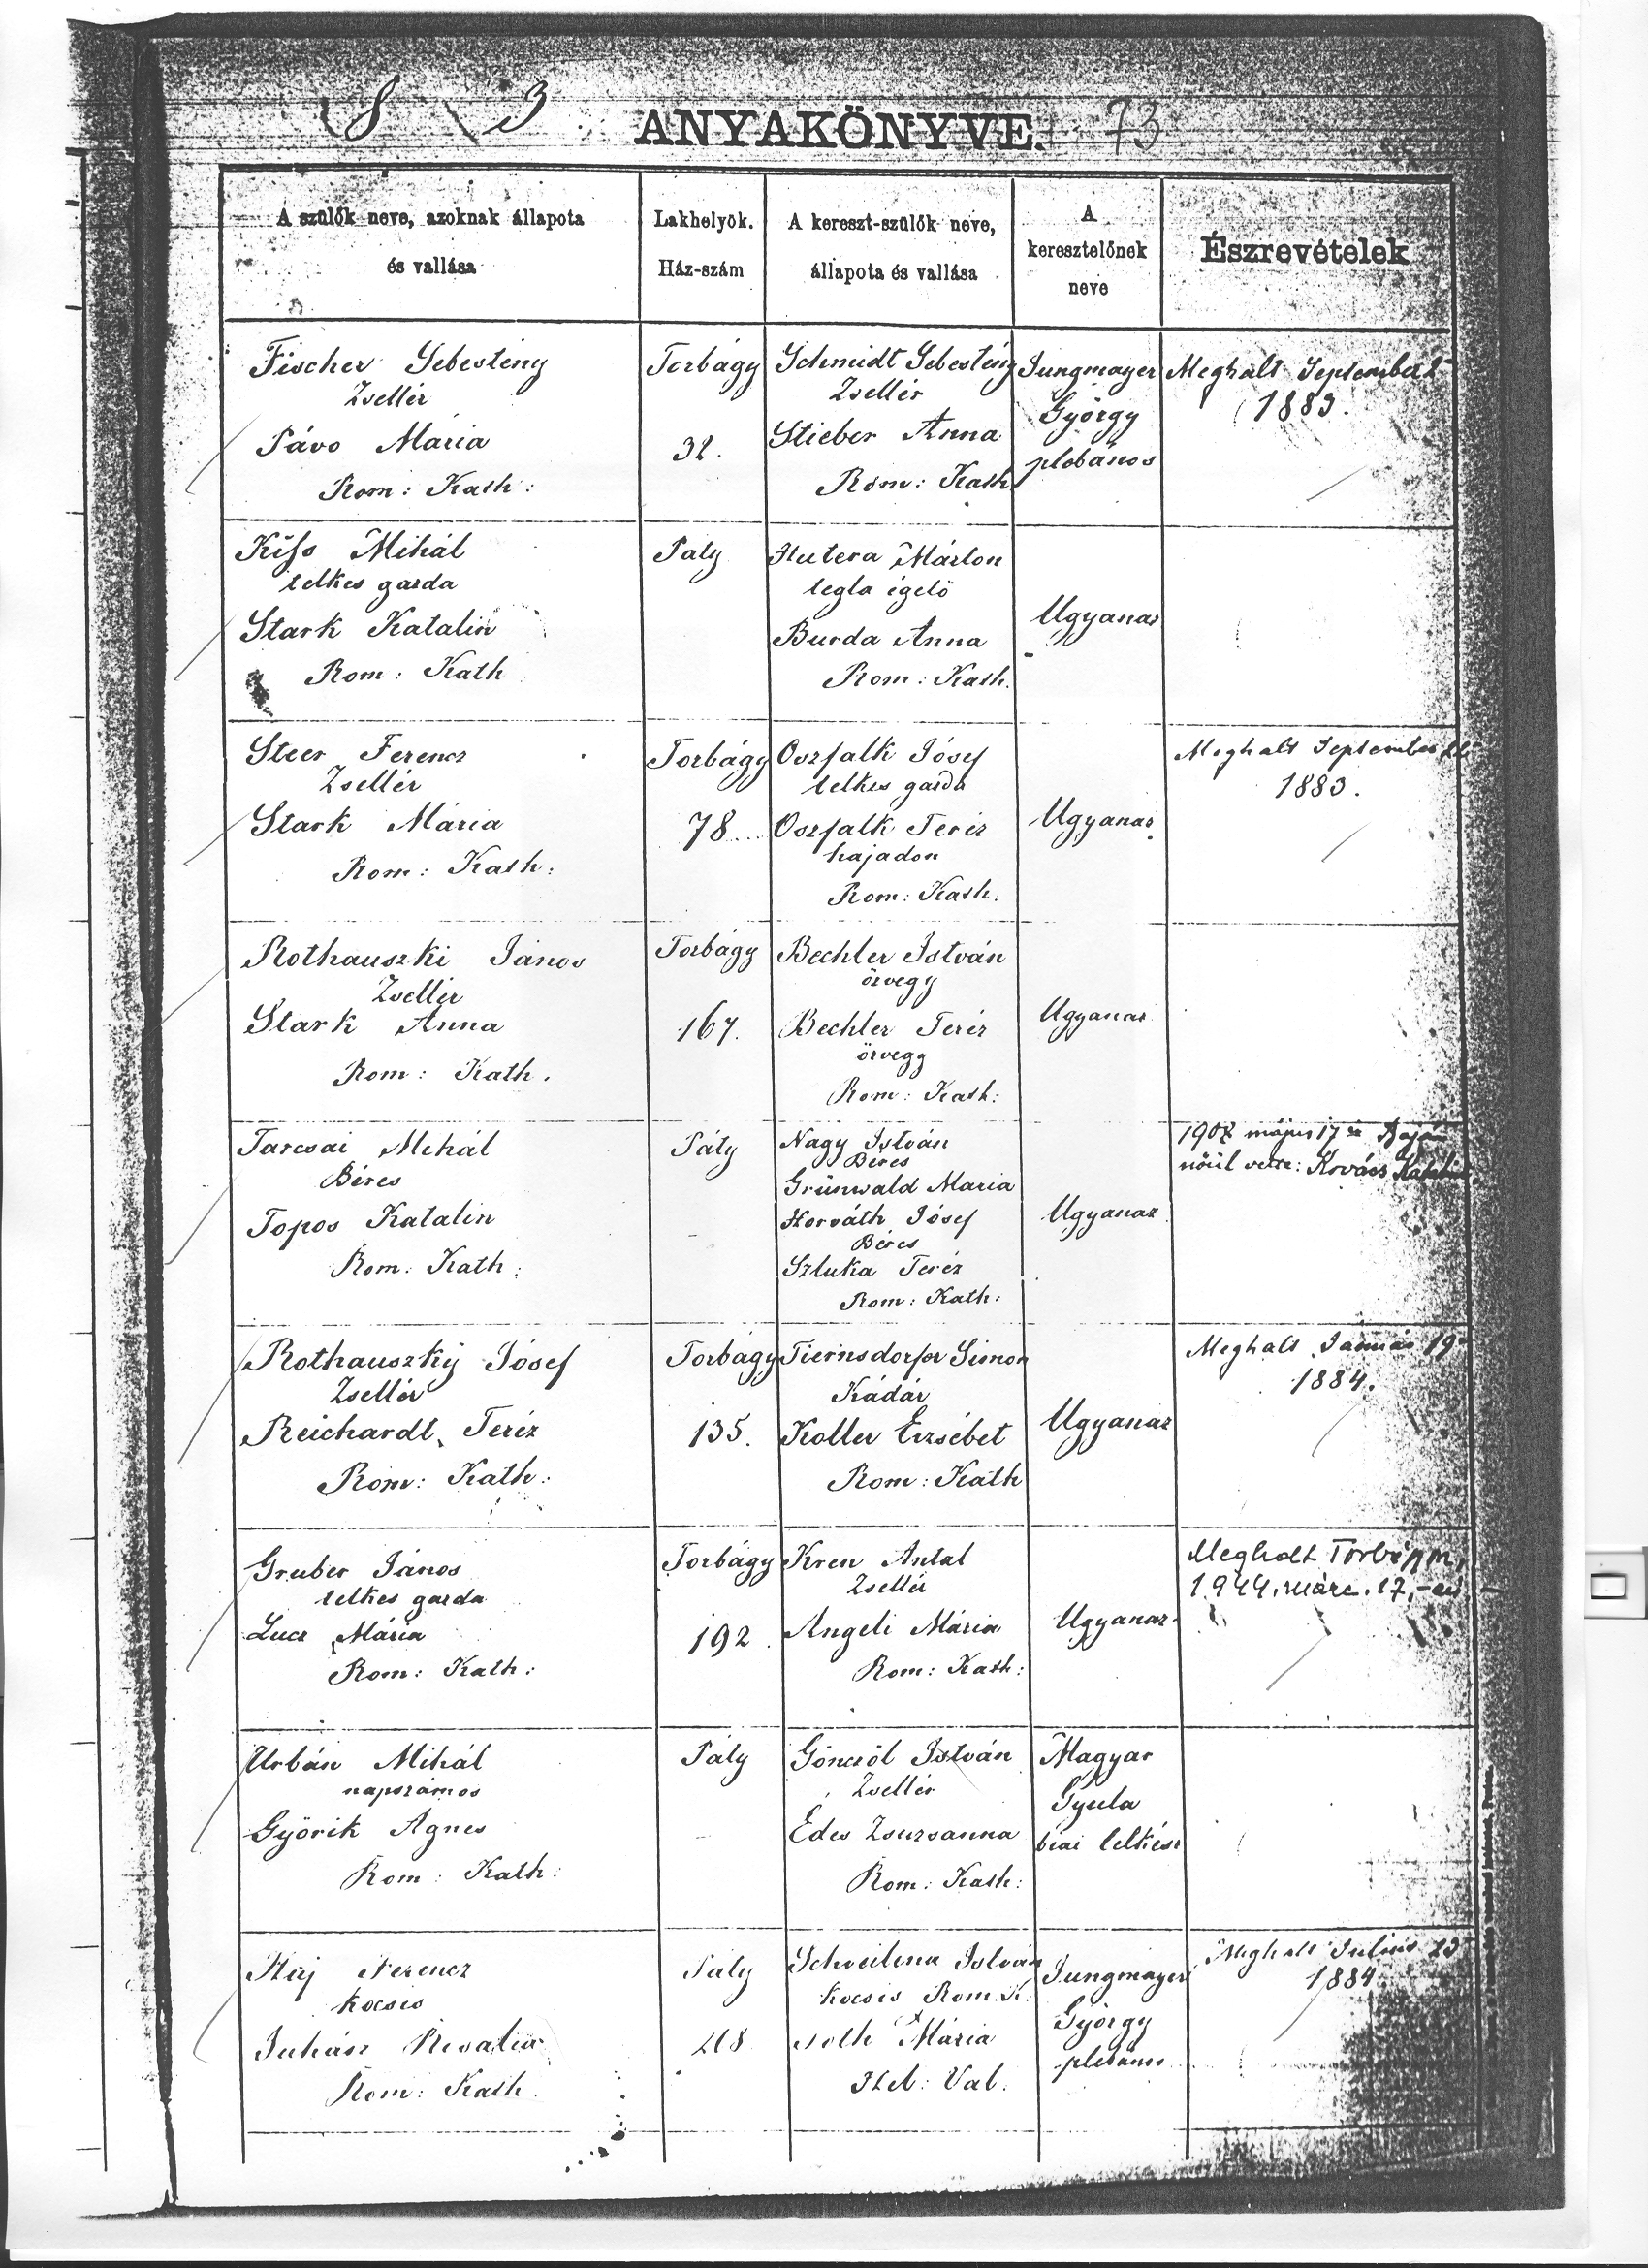 8 3 ANYAKÖNYVE. 73
A szülők neve, azoknak állapota
és vallása
Lakhelyök.
Ház-szám
A kereszt-szülők neve,
állapota és vallása
A
keresztelőnek
neve
Észrevételek
Fischer Sebestény
Zsellér
Pávo Maria
Rom: Kath:
Torbágy
32.
Schmidt Sebestény
Zsellér
Stieber Anna
Rom: Kath
Jungmayer
György
plebános
Meghalt September
1883.
Kiss Mihál
telkes gazda
Stark Katalin
Rom: Kath
Paty
Hutera Márton
tegla égető
Burda Anna
Rom: Kath.
Ugyanaz
Steer Ferencz
Zsellér
Stark Mária
Rom: Kath:
Torbágy
78
Oszfalk Jósef
telkes gazda
Oszfalk Teréz
hajadon
Rom: Kath:
Ugyanaz
Meghalt September
1883.
Rothauszki János
Zsellér
Stark Anna
Rom: Kath.
Torbágy
167.
Bechler István
özvegy
Bechler Teréz
özvegy
Rom: Kath:
Ugyanaz
Tarcsai Mihál
Béres
Topos Katalin
Rom: Kath:
Páty
Nagy István
Béres
Grünwald Maria
Horváth Jósef
Béres
Szluka Teréz
Rom: Kath:
Ugyanaz
május 17
nőül vette: Kovács Katalin
Rothauszky Jósef
Zsellér
Reichardt Teréz
Rom: Kath:
Torbágy
135.
Tiernsdorfer Simon
Kádár
Koller Erzsébet
Rom: Kath
Ugyanaz
Meghalt Január 19
1884.
Gruber János
telkes gazda
Lucz Mária
Rom: Kath:
Torbágy
192
Kren Antal
Zsellér
Angeli Mária
Rom: Kath:
Ugyanaz
Meghalt
1944. márc. 17.-én
Urbán Mihál
napszámos
Györik Agnes
Rom: Kath:
Páty
Göncröl István
Zsellér
Édes Zsuzsanna
Rom: Kath:
Magyar
Gyula
biai lelkész
Haj Ferencz
kocsis
Juhász Rosalia
Rom: Kath.
Páty
218
István
kocsis Rom. K.
Toth Mária
Hel: Val.
Jungmayer
György
plebános
Meghalt Julius 23
1884.